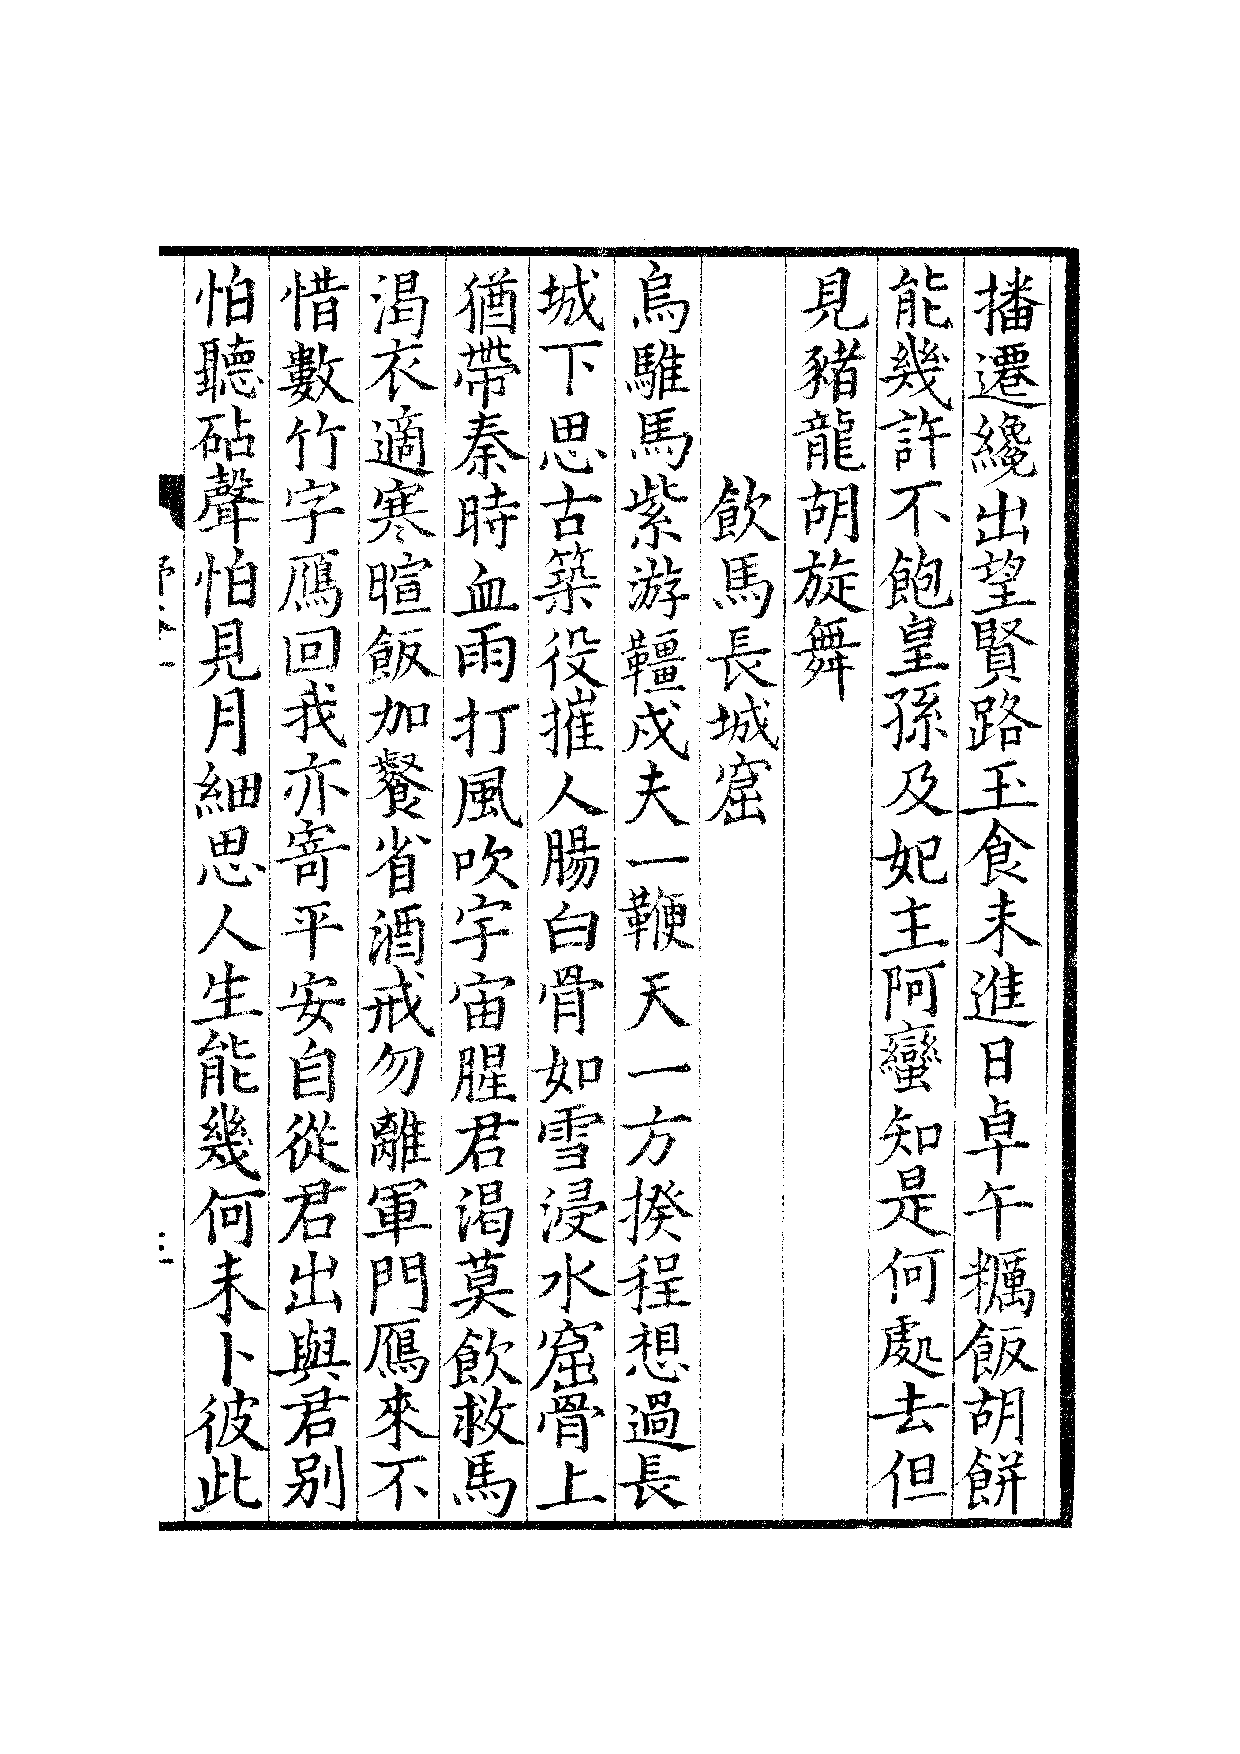 播遷纔出望賢路玉食未進日卓午糲飯胡餅
能幾許不飽皇孫及妃主阿蠻知是何處去但
見豬龍胡旋舞
飲馬長城窟
烏騅馬紫游韁戍夫一鞭天一方揆程想過長
城下思古築役摧人腸白骨如雪浸水窟骨上
猶帶秦時血雨打風吹宇宙腥君渴莫飲救馬
渴衣適寒暄飯加餐省酒戒勿離軍門鴈來不
惜數竹字鴈回我亦寄平安自從君出與君別
怕聽砧聲怕見月細思人生能幾何未卜彼此